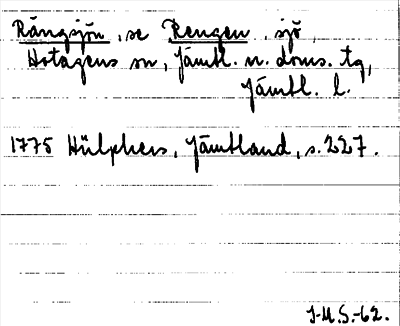 Rängsjön, se Rengen, sjö,
Hotagens sn, Jämtl. n. doms. tg,
Jämtl. l.
1775 Hülphers, Jämtland, s. 227.
J-M.S.-62.